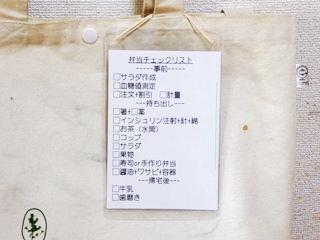 弁当チェックリスト
-----事前-----
□サラダ作成
□血糖値測定
□注文+割引 □計量
---持ち出し---
□箸+□薬
□インシュリン注射+針+綿
□お茶（水筒）
□コップ
□サラダ
□果物
□寿司or手作り弁当
□醤油+ワサビ+容器
---帰宅後---
□牛乳
□歯磨き